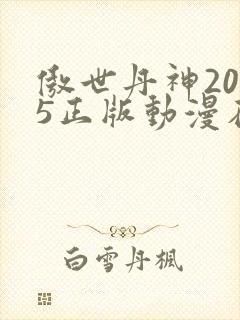 傲世丹神20
5正版動漫在
白雪丹楓